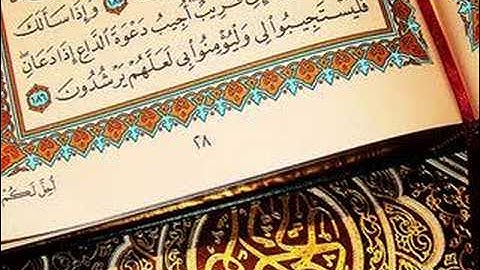 وَإِذَا سَأَلَكَ
قَرِيبٌ أُجِيبُ دَعْوَةَ الدَّاعِ إِذَا دَعَانِ
فَلْيَسْتَجِيبُوا لِي وَلْيُؤْمِنُوا بِي لَعَلَّهُمْ يَرْشُدُونَ ١٨٦
٢٨
أُحِلَّ لَكُمْ